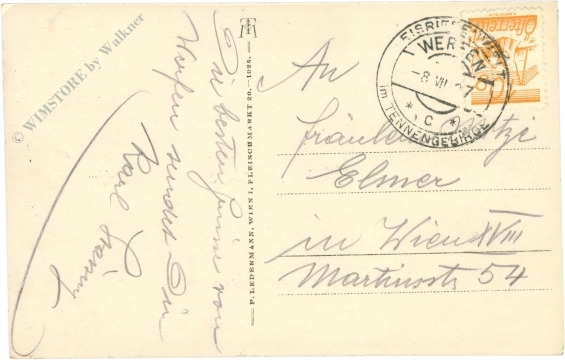 © WIMSTORE by Walkner
Die besten Grüsse von
Werfen sendet Dir
Karl
P. LEDERMANN, WIEN I, FLEISCHMARKT 20. — 1926.
EISRIESENWELT
WERFEN
-8 VII 27
* C *
im TENNENGEBIRGE
Österreich
An
Fräulein
Elsner
in Wien XVIII
Martinsstr 54